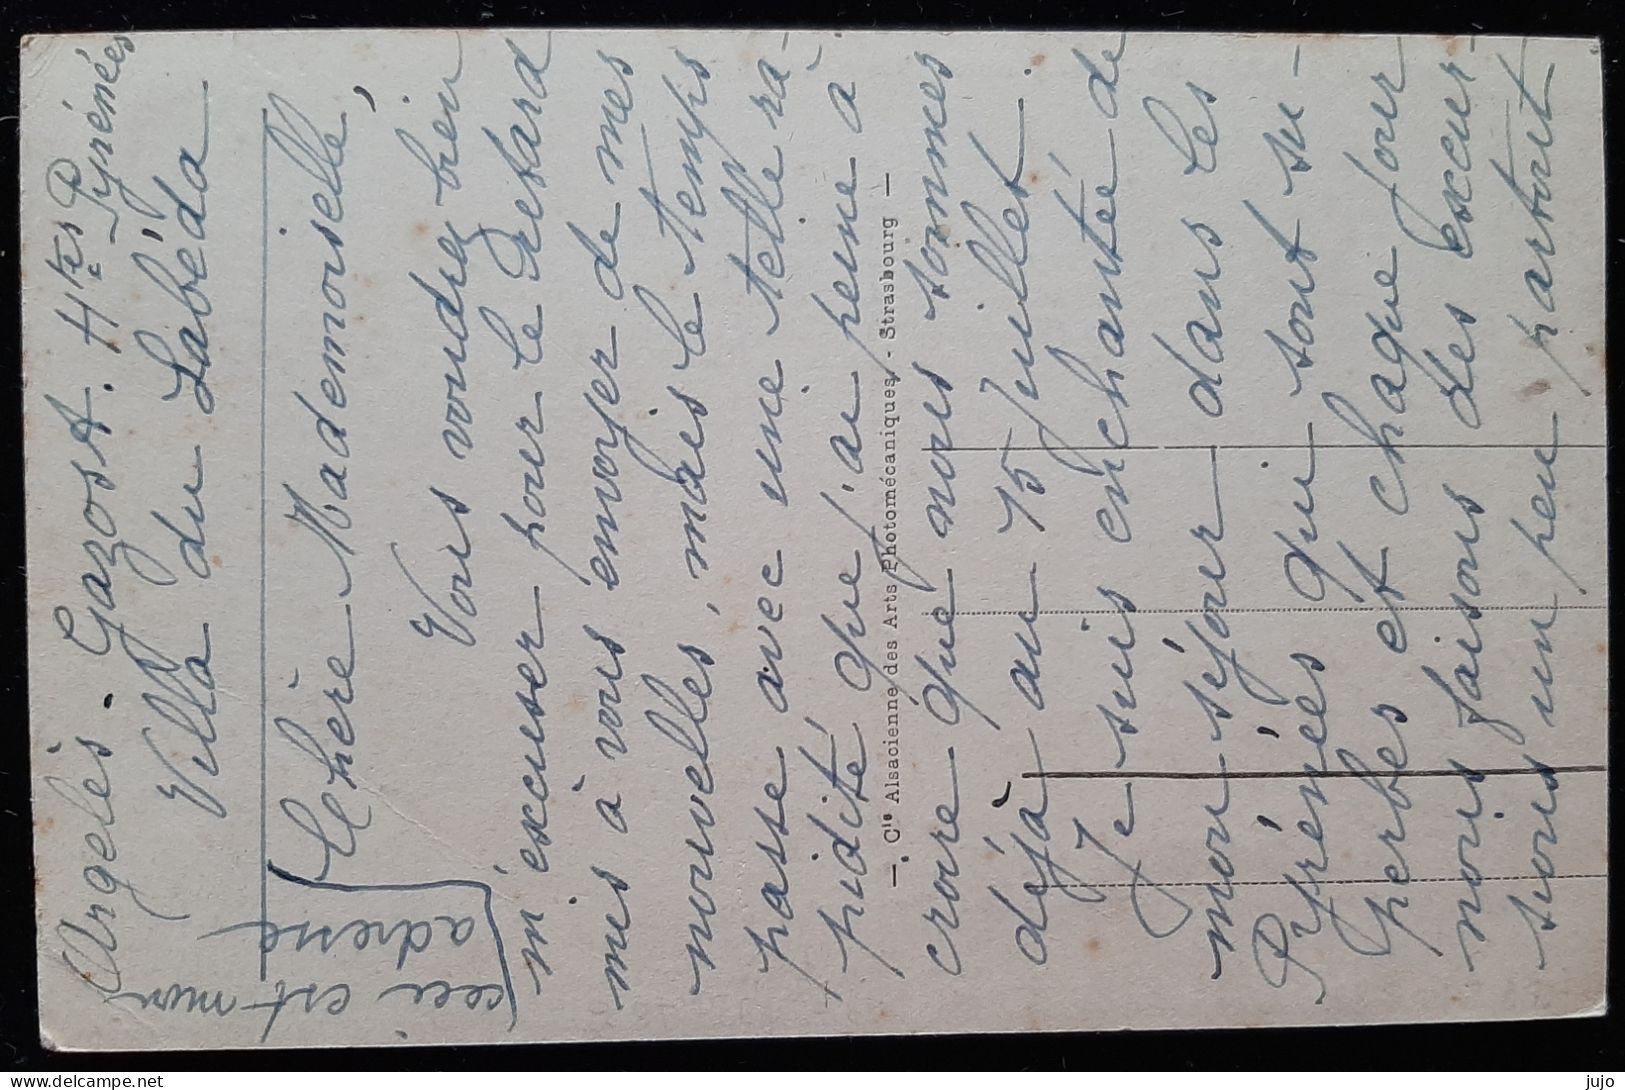 Argelès - Gazost. Htes Pyrénées
Villa du Labéda
ceci est mon
adresse
Chère Mademoiselle,
Vous voudrez bien
m'excuser pour le retard
mis à vous envoyer de mes
nouvelles, mais le temps
passe avec une telle ra-
pidité que j'ai peine à
croire que nous sommes
déjà au 15 juillet.
Je suis enchantée de
mon séjour dans les
Pyrénées qui sont su-
perbes et chaque jour
nous faisons des excur-
sions un peu partout
— Cie Alsacienne des Arts Photomécaniques, - Strasbourg —
jujo